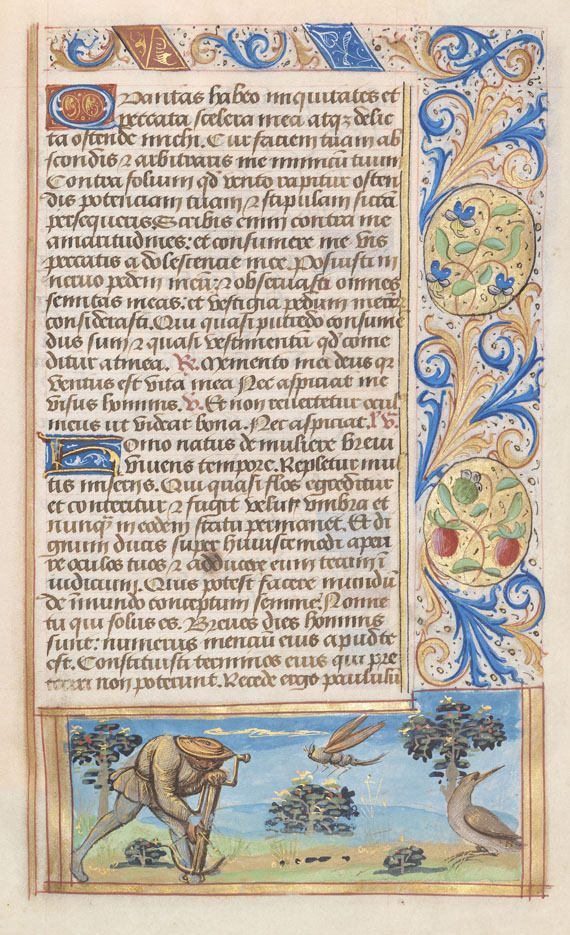 Quantas habeo iniquitates et
peccata scelera mea atqz delic
ta ostende michi. Cur faciem tuam ab
scondis et arbitraris me inimicu tuum
Contra folium qd vento rapitur osten
dis potenciam tuam et stipulam siccā
persequeris. Scribis enim contra me
amaritudines: et consumere me vis
peccatis adolescentie mee. Posuisti in
neruo pedem meū: et obseruasti omnes
semitas meas: et vestigia pedum meorū
considerasti. Qui quasi putredo consume
dus sum et quasi vestimentū qd come
ditur atinea. R. Memento mei deus qr
ventus est vita mea Nec aspiciat me
visus hominis. V. Et non reuertetur ocul
meus ut videat bona. Nec aspiciat. V.
Homo natus de muliere breui
viuens tempore. Repletur mul
tis miseriis. Qui quasi flos egreditur
et conteritur et fugit velut vmbra et
nunqz in eodem statu permanet. Et di
gnum ducis super huiuscemodi aperi
re oculos tuos et adducere eum tecum ī
iudicium. Quis potest facere mundū
de īmundo conceptum semine. Nonne
tu qui solus es. Breues dies hominis
sunt: numerus mensiū eius apud te
est. Constituisti terminos eius qui pre
non poterunt. Recede ergo paululū